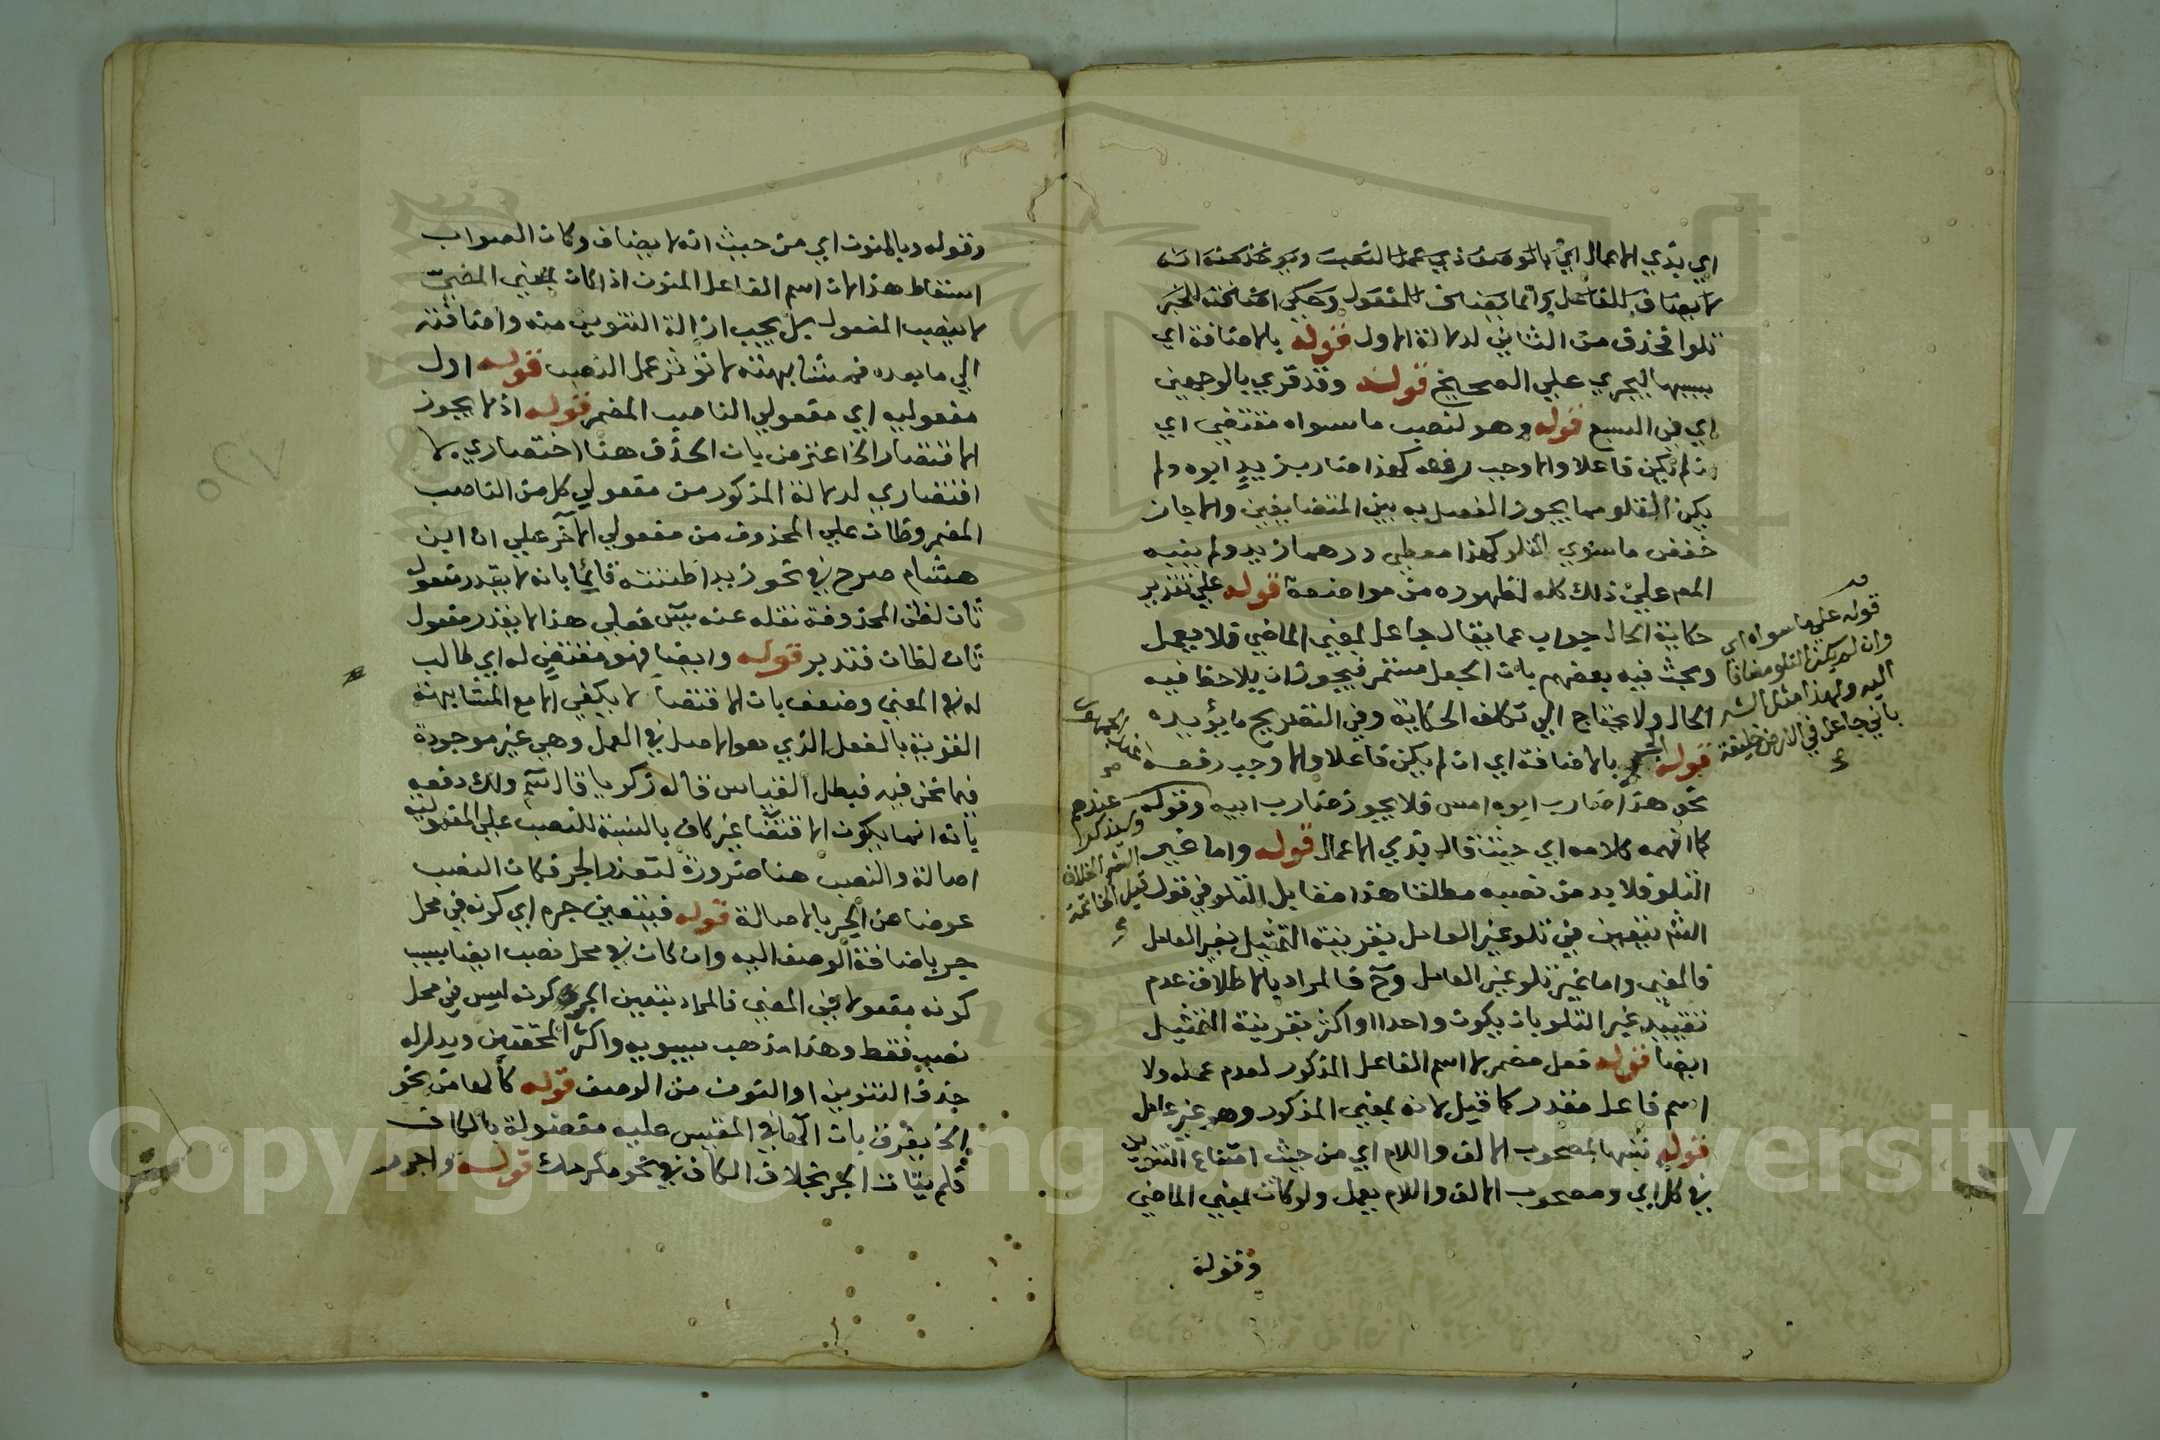 اي بذي الاعمال اي بالوصف ذي عمل النصب وبؤخذ منه انه
لا يضاف للفاعل وانما يضاف للمفعول وحكي اضافته للخبر
تلوا فحذف من الثاني لدلالة الاول قوله بالاضافة اي
بسببها ليجري علي الصحيح قوله وقد قري بالوجهين
اي في السبع قوله وهو لنصب ما سواه مقتضي اي
ان لم يكن فاعلا والا وجب رفعه كهذا ضارب زيد ابوه ولم
يكن التلو مما يجوز الفصل به بين المتضايفين والا جاز
خفض ما سوي التلو كهذا معطي درهما زيد ولم ينبه
المص علي ذلك كله لظهوره من مواضعه قوله علي تقدير
حكاية الحال جواب عما يقال جاعل بمعني الماضي فلا يعمل
وبحث فيه بعضهم بان الجعل مستمر فيجوز ان يلاحظ فيه
الحال ولا يحتاج الي تكلف الحكاية وفي التصريح ما يؤيده
قوله بالاضافة اي ان لم يكن فاعلا والا وجب رفعه
نحو هذا ضارب ابوه امس فلا يجوز ضارب ابيه وقوله
كما افهمه كلامه اي حيث قال بذي الاعمال قوله واما غير
التلو فلا بد من نصبه مطلقا هذا مقابل التلو في قول
الش يتعين في تلو غير العامل بقرينة التمثيل بغير العامل
فالمعني واما غير تلو غير العامل وح فالمراد بالاطلاق عدم
تقييد غير التلو بان يكون واحدا او اكثر بقرينة التمثيل
ايضا قوله فعل مضمر لا اسم الفاعل المذكور لعدم عمله ولا
اسم فاعل مقدر كما قيل لانه بمعني المذكور وهو غير عامل
قوله تشبيها بمصحوب الالف واللام اي من حيث امتناع التنوين
في كل اي ومصحوب الالف واللام يعمل ولو كان بمعني الماضي
وقوله
قوله علي ما سواه اي
وان لم يكن التلو مضافا
اليه ولهذا مثل الش
باني جاعل في الارض خليفة
وقوله وبالمنون اي من حيث انه لا يضاف وكان الصواب
اسقاط هذا لان اسم الفاعل المنون اذا كان بمعني المضي
لا ينصب المفعول بل يجب ازالة التنوين منه واضافته
الي ما بعده فمشابهته لا تؤثر عمل النصب قوله اول
مفعوليه اي مفعولي الناصب المضمر قوله اذ لا يجوز
الاقتصار الخ اعترض بان الحذف هنا اختصاري لا
اقتصاري لدلالة المذكور من مفعولي كل من الناصب
المضمر وظان علي المحذوف من مفعولي الآخر علي ان ابن
هشام صرح في نحو زيدا ظننته قائما بانه لا يقدر مفعول
ثان لظن المحذوفة نقله عنه يس فعلي هذا لا يقدر مفعول
ثان لظان فتدبر قوله وايضا فهو مقتض له اي طالب
له في المعني وضعف بان الاقتضا لا يكفي الا مع المشابهة
القوية بالفعل الذي هو الاصل في العمل وهي غير موجودة
فيما نحن فيه فبطل القياس قاله زكريا قال سم ولك دفعه
بانه انما يكون الاقتضا غير كاف بالنسبة للنصب علي المفعولية
اصالة والنصب هنا ضرورة لتعذر الجر فكان النصب
عوضا عن الجر بالاصالة قوله فيتعين جره اي كونه في محل
جر باضافة الوصف اليه وان كان في محل نصب ايضا بسبب
كونه مفعولا في المعني فالمراد بتعين الجر كونه ليس في محل
نصب فقط وهذا مذهب سيبويه واكثر المحققين ويدل له
حذف التنوين او النون من الوصف قوله كالها من نحو
الخ يفرق بان الها في المقيس عليه مفصولة بالكاف
فلم يتات الجر بخلاف الكاف في نحو مكرمك قوله واجرر